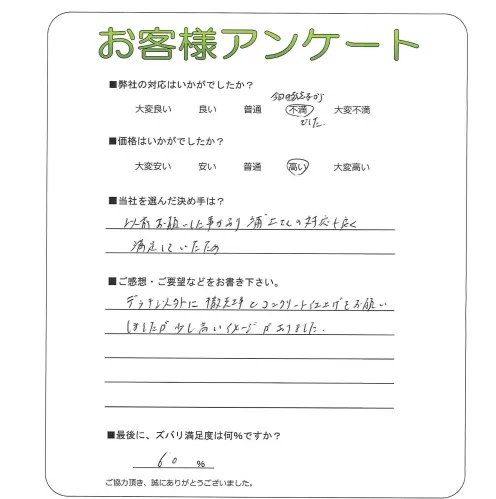 お客様アンケート
■弊社の対応はいかがでしたか?
大変良い 良い 普通 不満 大変不満
でした
■価格はいかがでしたか?
大変安い 安い 普通 高い 大変高い
■当社を選んだ決め手は?
以前お願いした事があり の対応も良く
満足していたため
■ご感想・ご要望などをお書き下さい。
デッキ以外に撤去工事とコンクリート仕上げをお願い
しましたが少し高いイメージがありました.
■最後に、ズバリ満足度は何%ですか?
60 %
ご協力頂き、誠にありがとうございました。